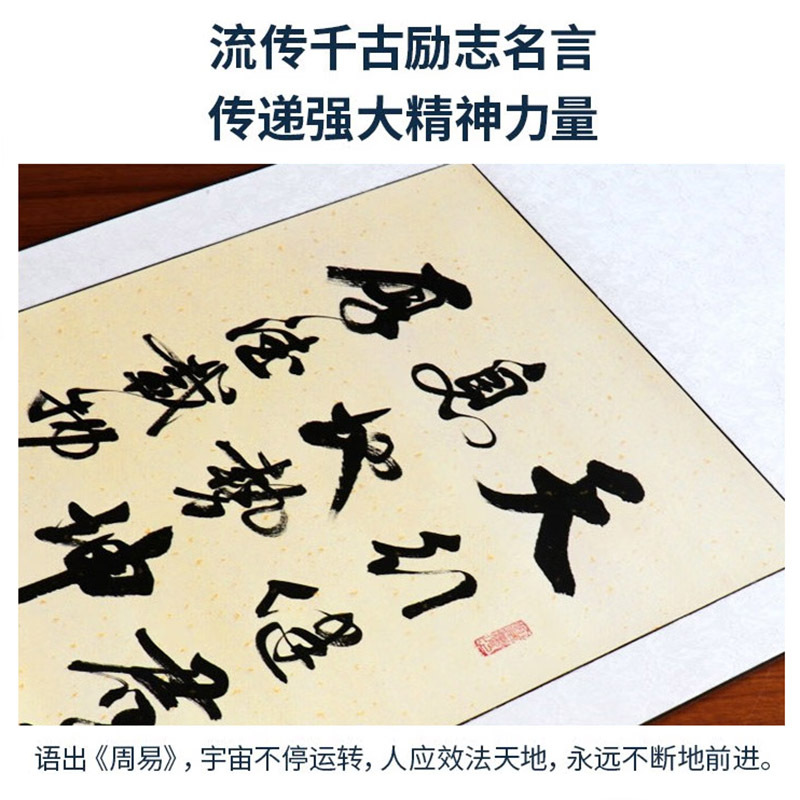 流传千古励志名言
传递强大精神力量
天行健君
息地势坤
厚德载物
语出《周易》，宇宙不停运转，人应效法天地，永远不断地前进。